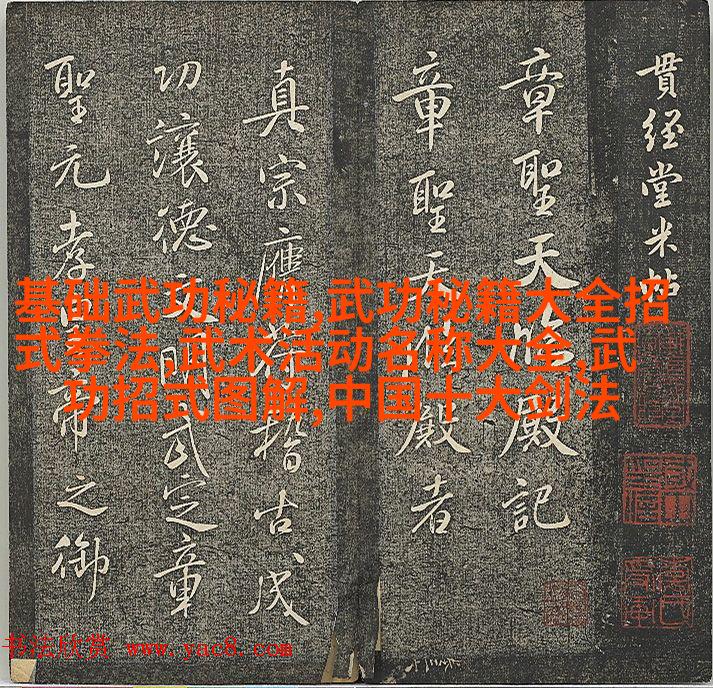 貫經堂米帖
章聖天臨殿記
章聖天臨殿者
真宗稽古成
功讓德文明武定章
聖元孝皇帝之御
基础武功秘籍,武功秘籍大全招
式拳法,武术活动名称大全,武
功招式图解,中国十大剑法
书法欣赏 www.yac8.com